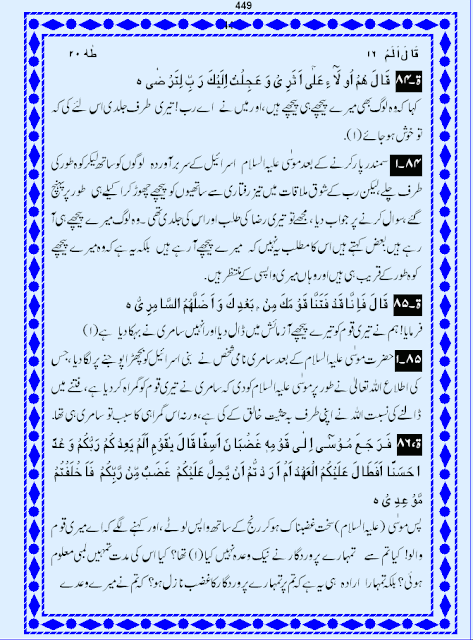 449
قَالَ اَلَمْ ۱۶
طٰهٰ ۲۰
ق۔۸۴ قَالَ هُمْ اُولَآءِ عَلٰٓى اَثَرِىْ وَعَجِلْتُ اِلَيْكَ رَبِّ لِتَرْضٰى ہ
کہا کہ وہ لوگ بھی میرے پیچھے ہی پیچھے ہیں، اور میں نے اے رب! تیری طرف جلدی اس لئے کی کہ
تو خوش ہو جائے (۱)۔
۸۴۔۱ سمندر پار کرنے کے بعد موسٰی علیہ السلام اسرائیل کے سر برآوردہ لوگوں کو ساتھ لیکر کوہ طور کی
طرف چلے لیکن رب کے شوق ملاقات میں تیز رفتاری سے ساتھیوں کو پیچھے چھوڑ کر اکیلے ہی طور پر پہنچ
گئے، سوال کرنے پر جواب دیا، مجھے تو تیری رضا کی طلب اور اس کی جلدی تھی۔ وہ لوگ میرے پیچھے ہی آ
رہے ہیں بعض کہتے ہیں اس کا مطلب یہ نہیں کہ میرے پیچھے آ رہے ہیں بلکہ یہ ہے کہ وہ میرے پیچھے
کوہ طور کے قریب ہی ہیں اور وہاں میری واپسی کے منتظر ہیں۔
ق۔۸۵ قَالَ فَاِنَّا قَدْ فَتَنَّا قَوْمَكَ مِنْۢ بَعْدِكَ وَ اَضَلَّهُمُ السَّامِرِىُّ ہ
فرمایا! ہم نے تیری قوم کو تیرے پیچھے آزمائش میں ڈال دیا اور انہیں سامری نے بہکا دیا ہے (۱)
۸۵۔۱ حضرت موسٰی علیہ السلام کے بعد سامری نامی شخص نے بنی اسرائیل کو بچھڑا پوجنے پر لگا دیا، جس
کی اطلاع اللہ تعالٰی نے طور پر موسٰی علیہ السلام کو دی کہ سامری نے تیری قوم کو گمراہ کر دیا ہے، فتنے میں
ڈالنے کی نسبت اللہ نے اپنی طرف بہ حیثیت خالق کے کی ہے، ورنہ اس گمراہی کا سبب تو سامری ہی تھا۔
ق۸۶ فَرَجَعَ مُوْسٰٓى اِلٰى قَوْمِهٖ غَضْبَانَ اَسِفًا قَالَ يٰقَوْمِ اَلَمْ يَعِدْكُمْ رَبُّكُمْ وَعْدً
ا حَسَنًا اَفَطَالَ عَلَيْكُمُ الْعَهْدُ اَمْ اَرَدْتُّمْ اَنْ يَّحِلَّ عَلَيْكُمْ غَضَبٌ مِّنْ رَّبِّكُمْ فَاَخْلَفْتُمْ
مَّوْعِدِىْ ہ
پس موسٰی (علیہ السلام) سخت غضبناک ہو کر رنج کے ساتھ واپس لوٹے، اور کہنے لگے کہ اے میری قوم
والو! کیا تم سے تمہارے پروردگار نے نیک وعدہ نہیں کیا (۱) تھا؟ کیا اس کی مدت تمہیں لمبی معلوم
ہوئی؟ بلکہ تمہارا ارادہ ہی یہ ہے کہ تم پر تمہارے پروردگار کا غضب نازل ہو؟ کہ تم نے میرے وعدے